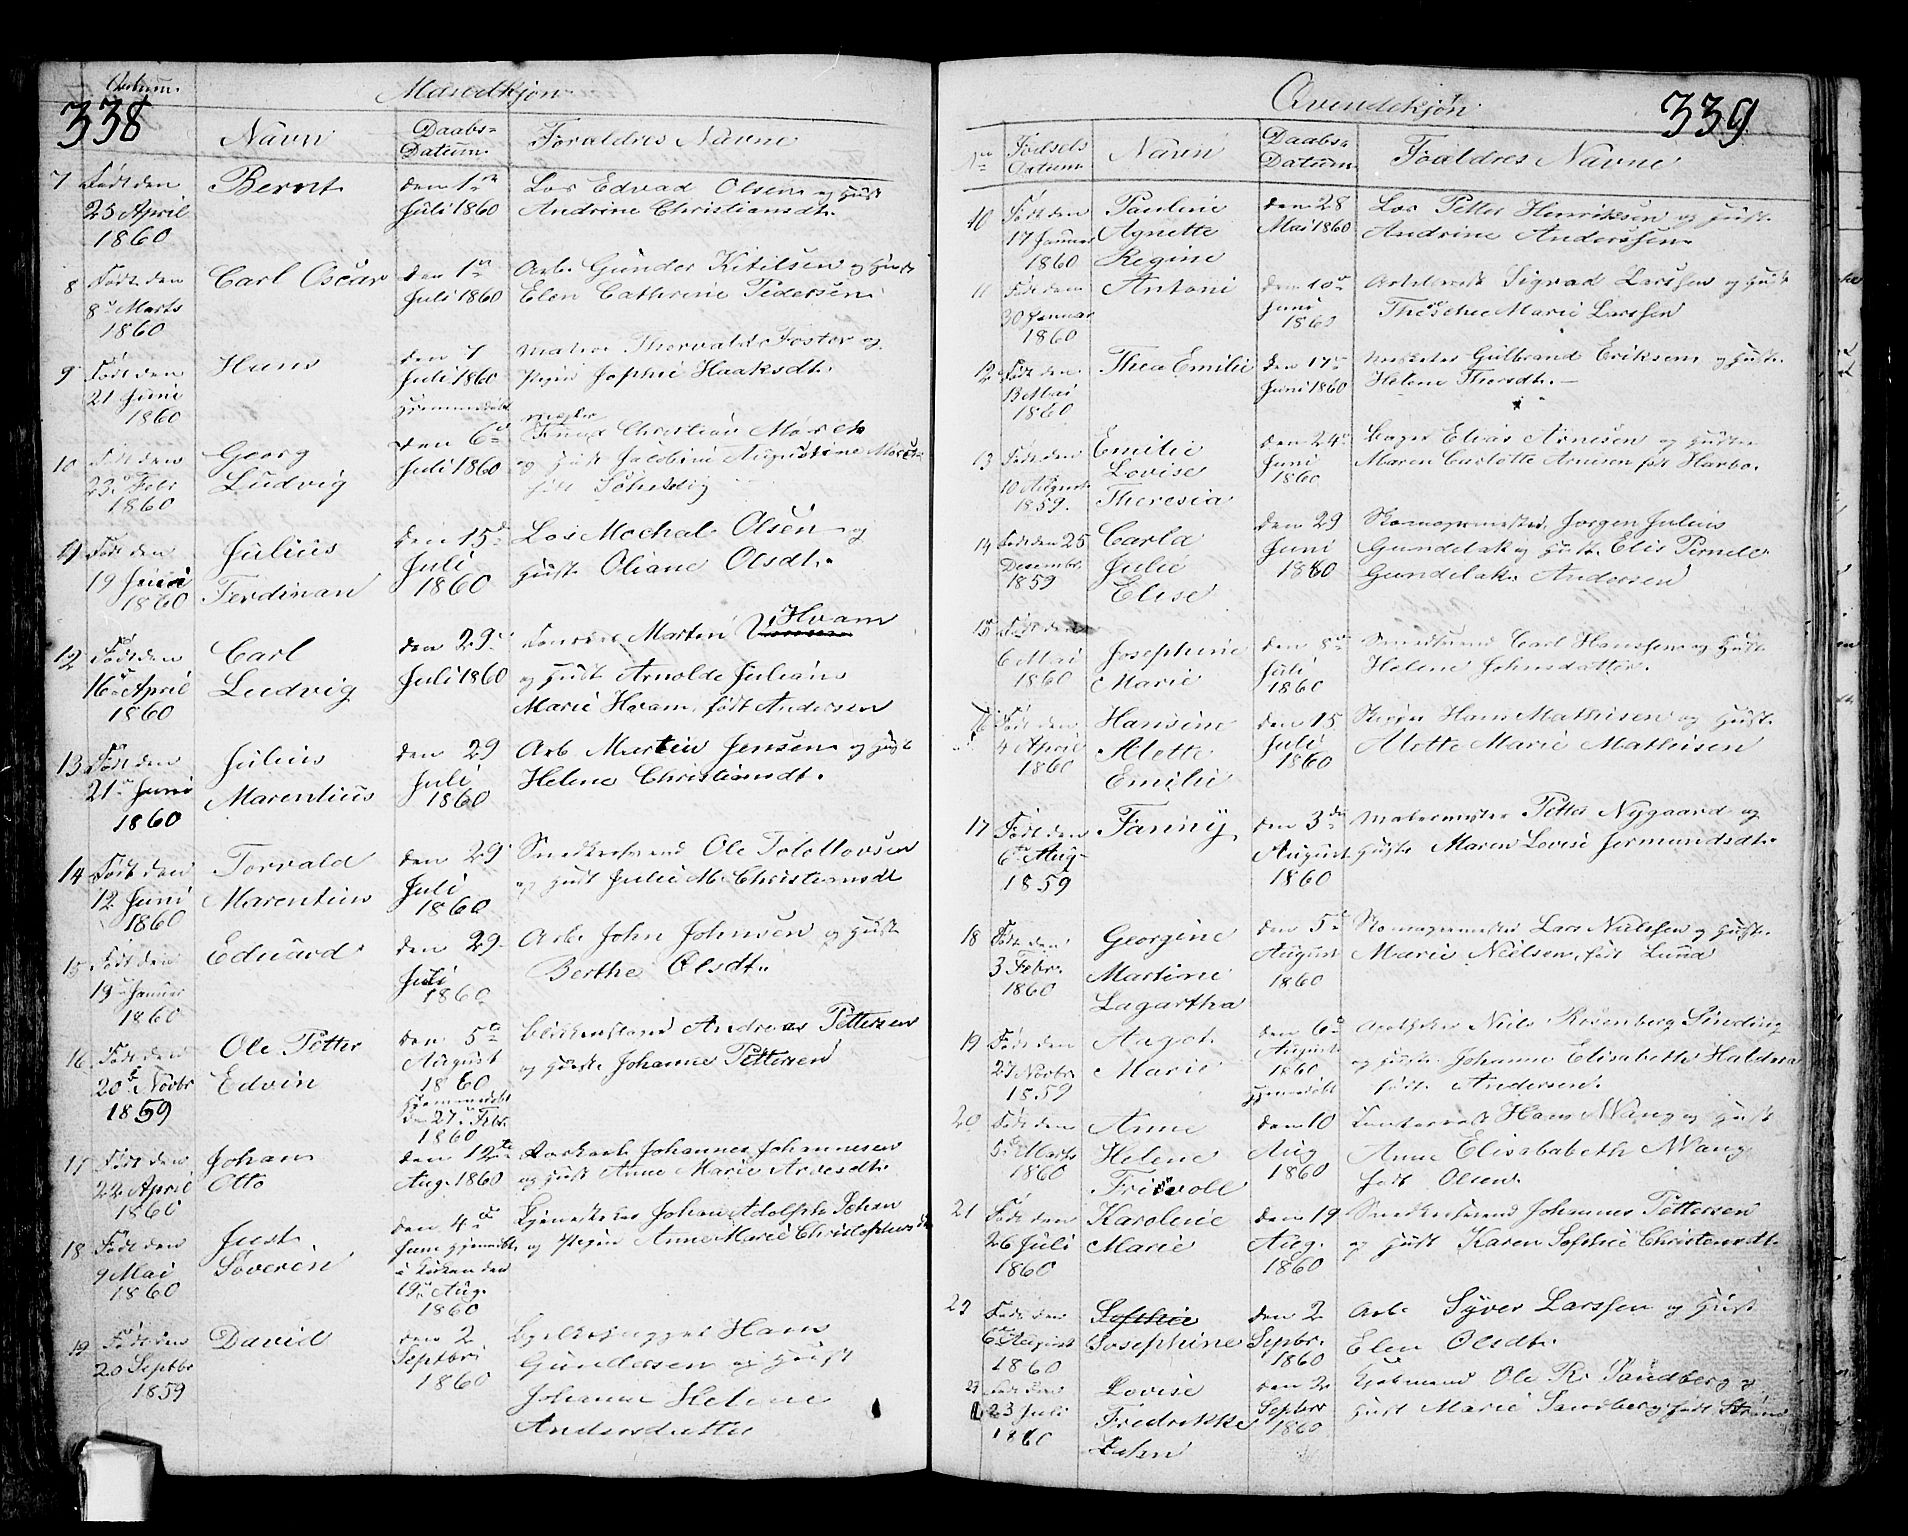 338
Datum.
Mandkjøn
Navn
Daabs-
Datum.
Foraldres Navne
7 Født den
25 April
1860
Bernt
den 1ste
Juli 1860
Los Edvad Olsen og Hust
Andrine Christiansdt.
8 Født den
8de Marts
1860
Carl Oscar
den 1ste
Juli 1860
Arb. Gunder Kitilsen og Hust
Elen Cathrine Pedersen
9 Født den
21 Juni
1860
Hans
den 1
Juli 1860
Hjemmedøbt
Maler Thorvald Foster og
Pigen Sophie Haaksdt.
10 Født den
23de Febr
1860
Georg
Ludvig
den 6te
Juli 1860
Mægler
Knud Christian March
og Hust Jacobine Augustine March
født
11 Født den
19 Juni
1860
Julius
Ferdinan
den 15de
Juli
1860
Los Mochal Olsen og
Hust. Oliane Olsdt.
12 Født den
16de April
1860
Carl
Ludvig
den 29de
Juli 1860
Martin Hvam
og Hust Arnolde Juliane
Marie Hvam, født Andersen
13 Født den
21de Juni
1860
Julius
Marentius
den 29
Juli
1860
Arb Martin Jensen og Hust
Helene Christiansdt.
14 Født den
12 Juni
1860
Torvald
Marentius
den 29
Juli
1860
Smedkersvend Ole Tolettovsen
og Hust Julie M. Christiansdt
15 Født den
19de Januar
1860
Eduard
den 29
Juli
1860
Arb. John Johnsen og Hust.
Berthe Olsdt.
16 Født den
20de Novbr
1859
Ole Petter
Edvin
den 5te
August
1860
hjemmedøbt
den 27de Febr
1860
Blikkensland Andreas Pettersen
og Hustr Johanne Pettersen
17 Født den
22 April
1860
Johan
Otto
den 12te
Aug. 1860
Johannes Johannesen
og Hust Anne Marie Arvesdt.
18 Født den
9 Mai
1860
Just
Severin
den 4de
Juni hjemdøbt
i Kirken den
19de Aug.
1860
Johan Adolph Johan
og Pigen Anne Marie Christophersdt
19 Født den
20 Septbr
1859
David
den 2
Septbr
1860
Hans
Gundersen og Hust
Johanne Helene
Andersdatter
339
Qvindekjøn
Fødsels
Datum
Navn
Daabs-
Datum
Foaldres Navne
10 Født den
17 Januar
1860
Pauline
Agnette
Regine
den 28
Mai 1860
Los Petter Henriksen og Hust.
Andrine Anderssen
11 Født den
30 Januar
1860
Antoni
den 10de
Juni
1860
Sigvad Larssen og Hust
Marie Larssen
12 Født den
1860
Thea Emilie
den 17de
Juni 1860
Gulbrand Eriksen og Hustr.
Helene Thorsdt.
13 Født den
10 August
1859.
Emilie
Lovise
Theresia
den 24de
Juni
1860
Bager Elias Arnesen og Hustr
Maren Carlotte Arnesen født Harbo.
14 Født den 25
Decembr
1859
Carla
Julie
Elise
den 29
Juni
1860
Skomagermester Jørgen Julius
Gundelak og Hust. Elis Pernele
Gundelak Andersen
15 Født den
6 Mai
1860
Josephine
Marie
den 8de
Juli
1860
Carl Hanssen og Hust
Helene Johnsdatter
16 Født den
4 April
1860
Hansine
Alette
Emilie
den 15
Juli
1860
Hans Mathisen og Hust.
Alette Marie Mathisen
17 Født den
6te Aug
1859
Fanny
den 3die
August
1860
Malermester Petter Nygaard og
Hustr Maren Lovise Jermundsdt.
18 Født den
3 Febr.
1860
Georgine
Martine
Lagartha
den 5te
August
1860
Skomagermester Lars Nielssen og Hust.
Marie Nielsen, født Lund
19 Født den
27 Novbr
1859
Augot
Marie
den 6te
August
1860
hjemmedøbt
Apotheker Niels Rosenberg Sinding
og Hustr Johanne Elisabeth Haldora
født Andersen.
20 Født den
5te Marts
1860
Anne
Helene
Frisvoll
den 10
Aug
1860
Hans Wang og Hust
Anne Elisabeth Wang
født Olsen.
21 Født den
26 Juli
1860
Karoline
Marie
den 19
Aug.
1860
Smedkersvend Johannes Pettersen
og Hust Karen Sophie Christensdt.
22 Født den
6te August
1860
Sophie
Josephine
den 2
Septbr.
1860
Arb Syver Larssen og Hust
Elen Olsdt.
23 Født den
23 Juli
1860
Lovise
Fredrikke
den 2
Septbr
1860
Kjøbmand Ole R. Sandberg og
Hust Marie Sandberg født